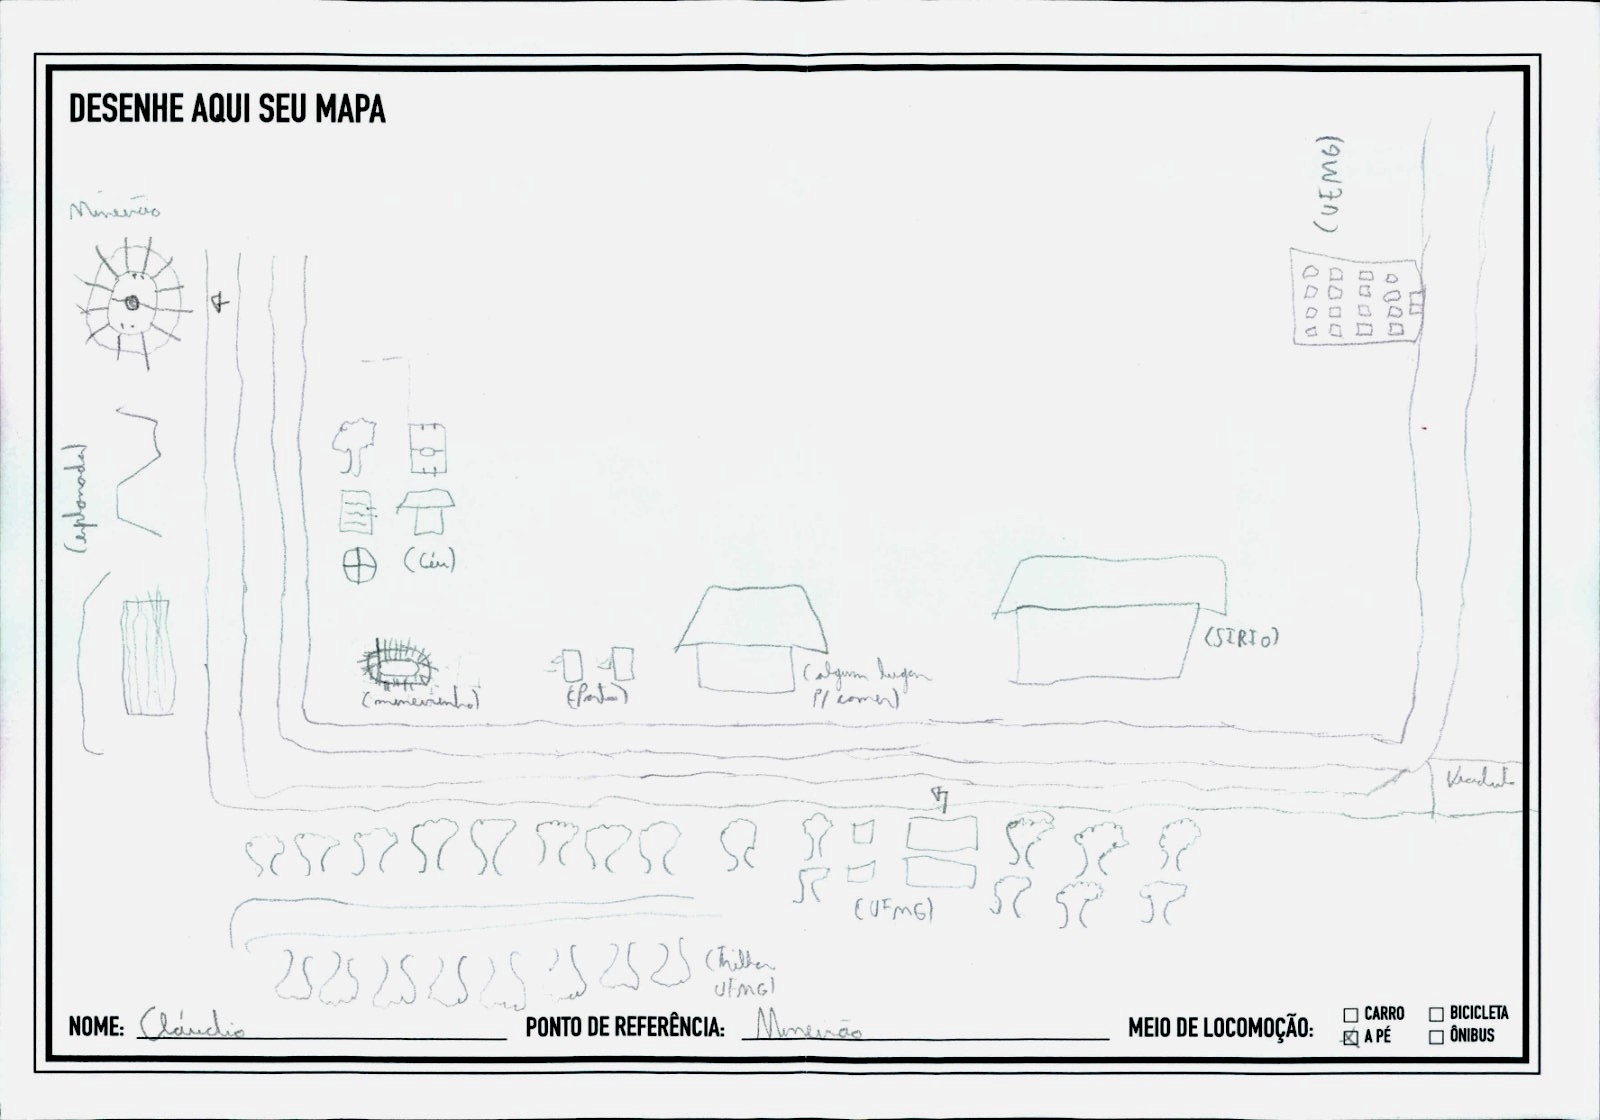 DESENHE AQUI SEU MAPA
(UEMG)
Mineirão
(esplanada)
(Céu)
(SIRIO)
(mineirinho)
(Posto)
(algum lugar
P/ comer)
Viaduto
(UFMG)
(trilha
UFMG)
NOME: Cláudio
PONTO DE REFERÊNCIA: Mineirão
MEIO DE LOCOMOÇÃO:
CARRO
BICICLETA
A PÉ
ÔNIBUS